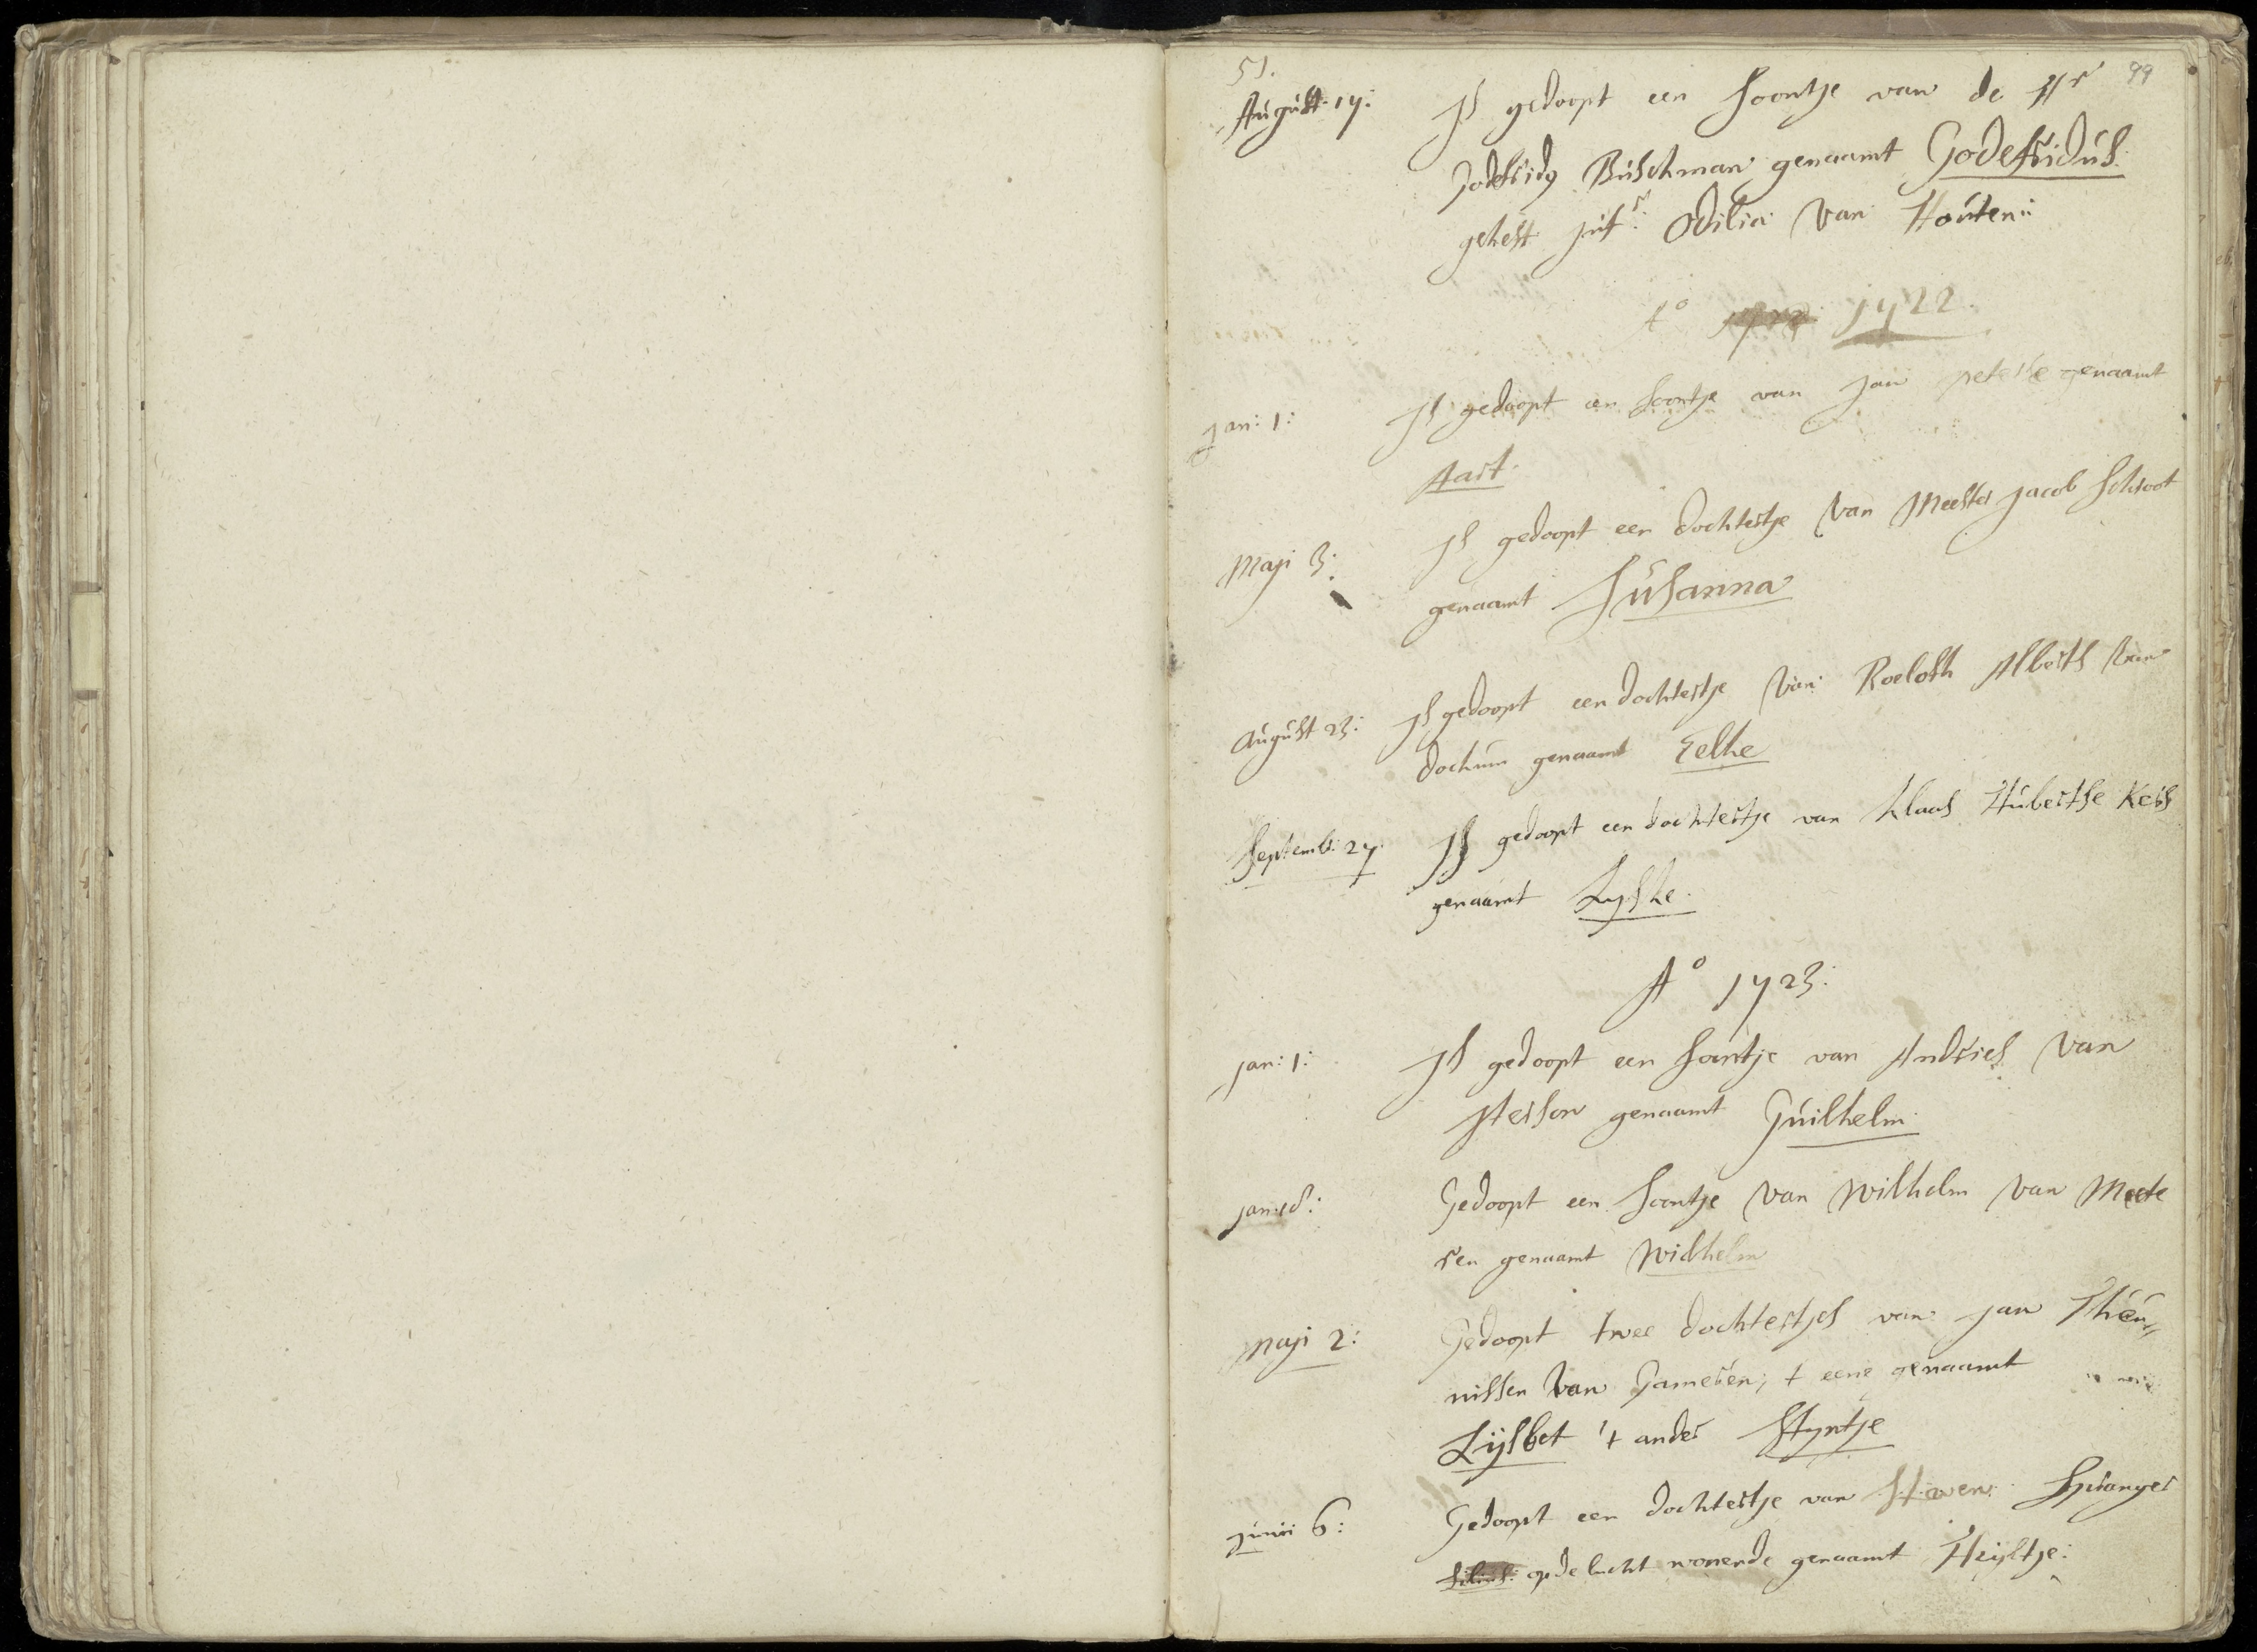 51.
99
August. 17: Is gedoopt een soontje van de Hr
Godefridg Buschman genaamt Godefridus
gehest jufr. Odilia van Houten
Ao 1722.
Jan: 1: Is gedoopt een soontje van Jan peterse genaamt
Aart.
Maji 3: Is gedoopt een dochtertje van Meester Jacob Schroot
genaamt Susanna
August 23: Is gedoopt een dochtertje van Roeloth Alberts van
dochum genaamt Eelke
Septemb: 27. Is gedoopt een dochtertje van Klaas Hubertse Kers
genaamt Lyske.
Ao 1723:
jan: 1: Is gedoopt een soontje van Andries van
Herson genaamt Guilhelm
jan: Gedoopt een soontje van Wilhelm van Mete
ren genaamt Wilhelm
Maji 2: Gedoopt twee dochtertjes van jan Theu„
nissen van Gameren; t eene genaamt
Lijsbet 't ander Styntje
junii 6: Gedoopt een dochtertje van Steven Spranger
op de lucht wonende genaamt Heyltje: